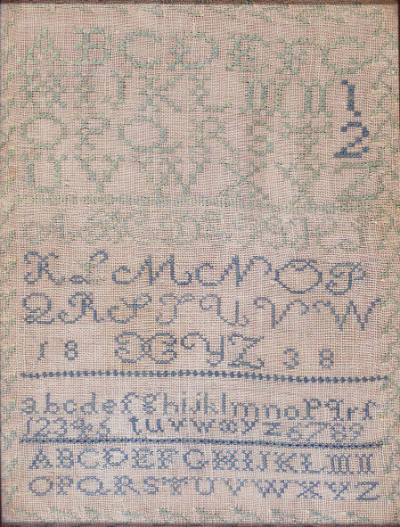 A B C D E F G
H I J K L M N 1
O P Q R S T 2
U V W X Y Z
K L M N O P
Q R S T U V W
18 X Y Z 38
abcdefghijklmnopqrs
tuvwxyz 6789
ABCDEFGHIJKLMN
OPQRSTUVWXYZ